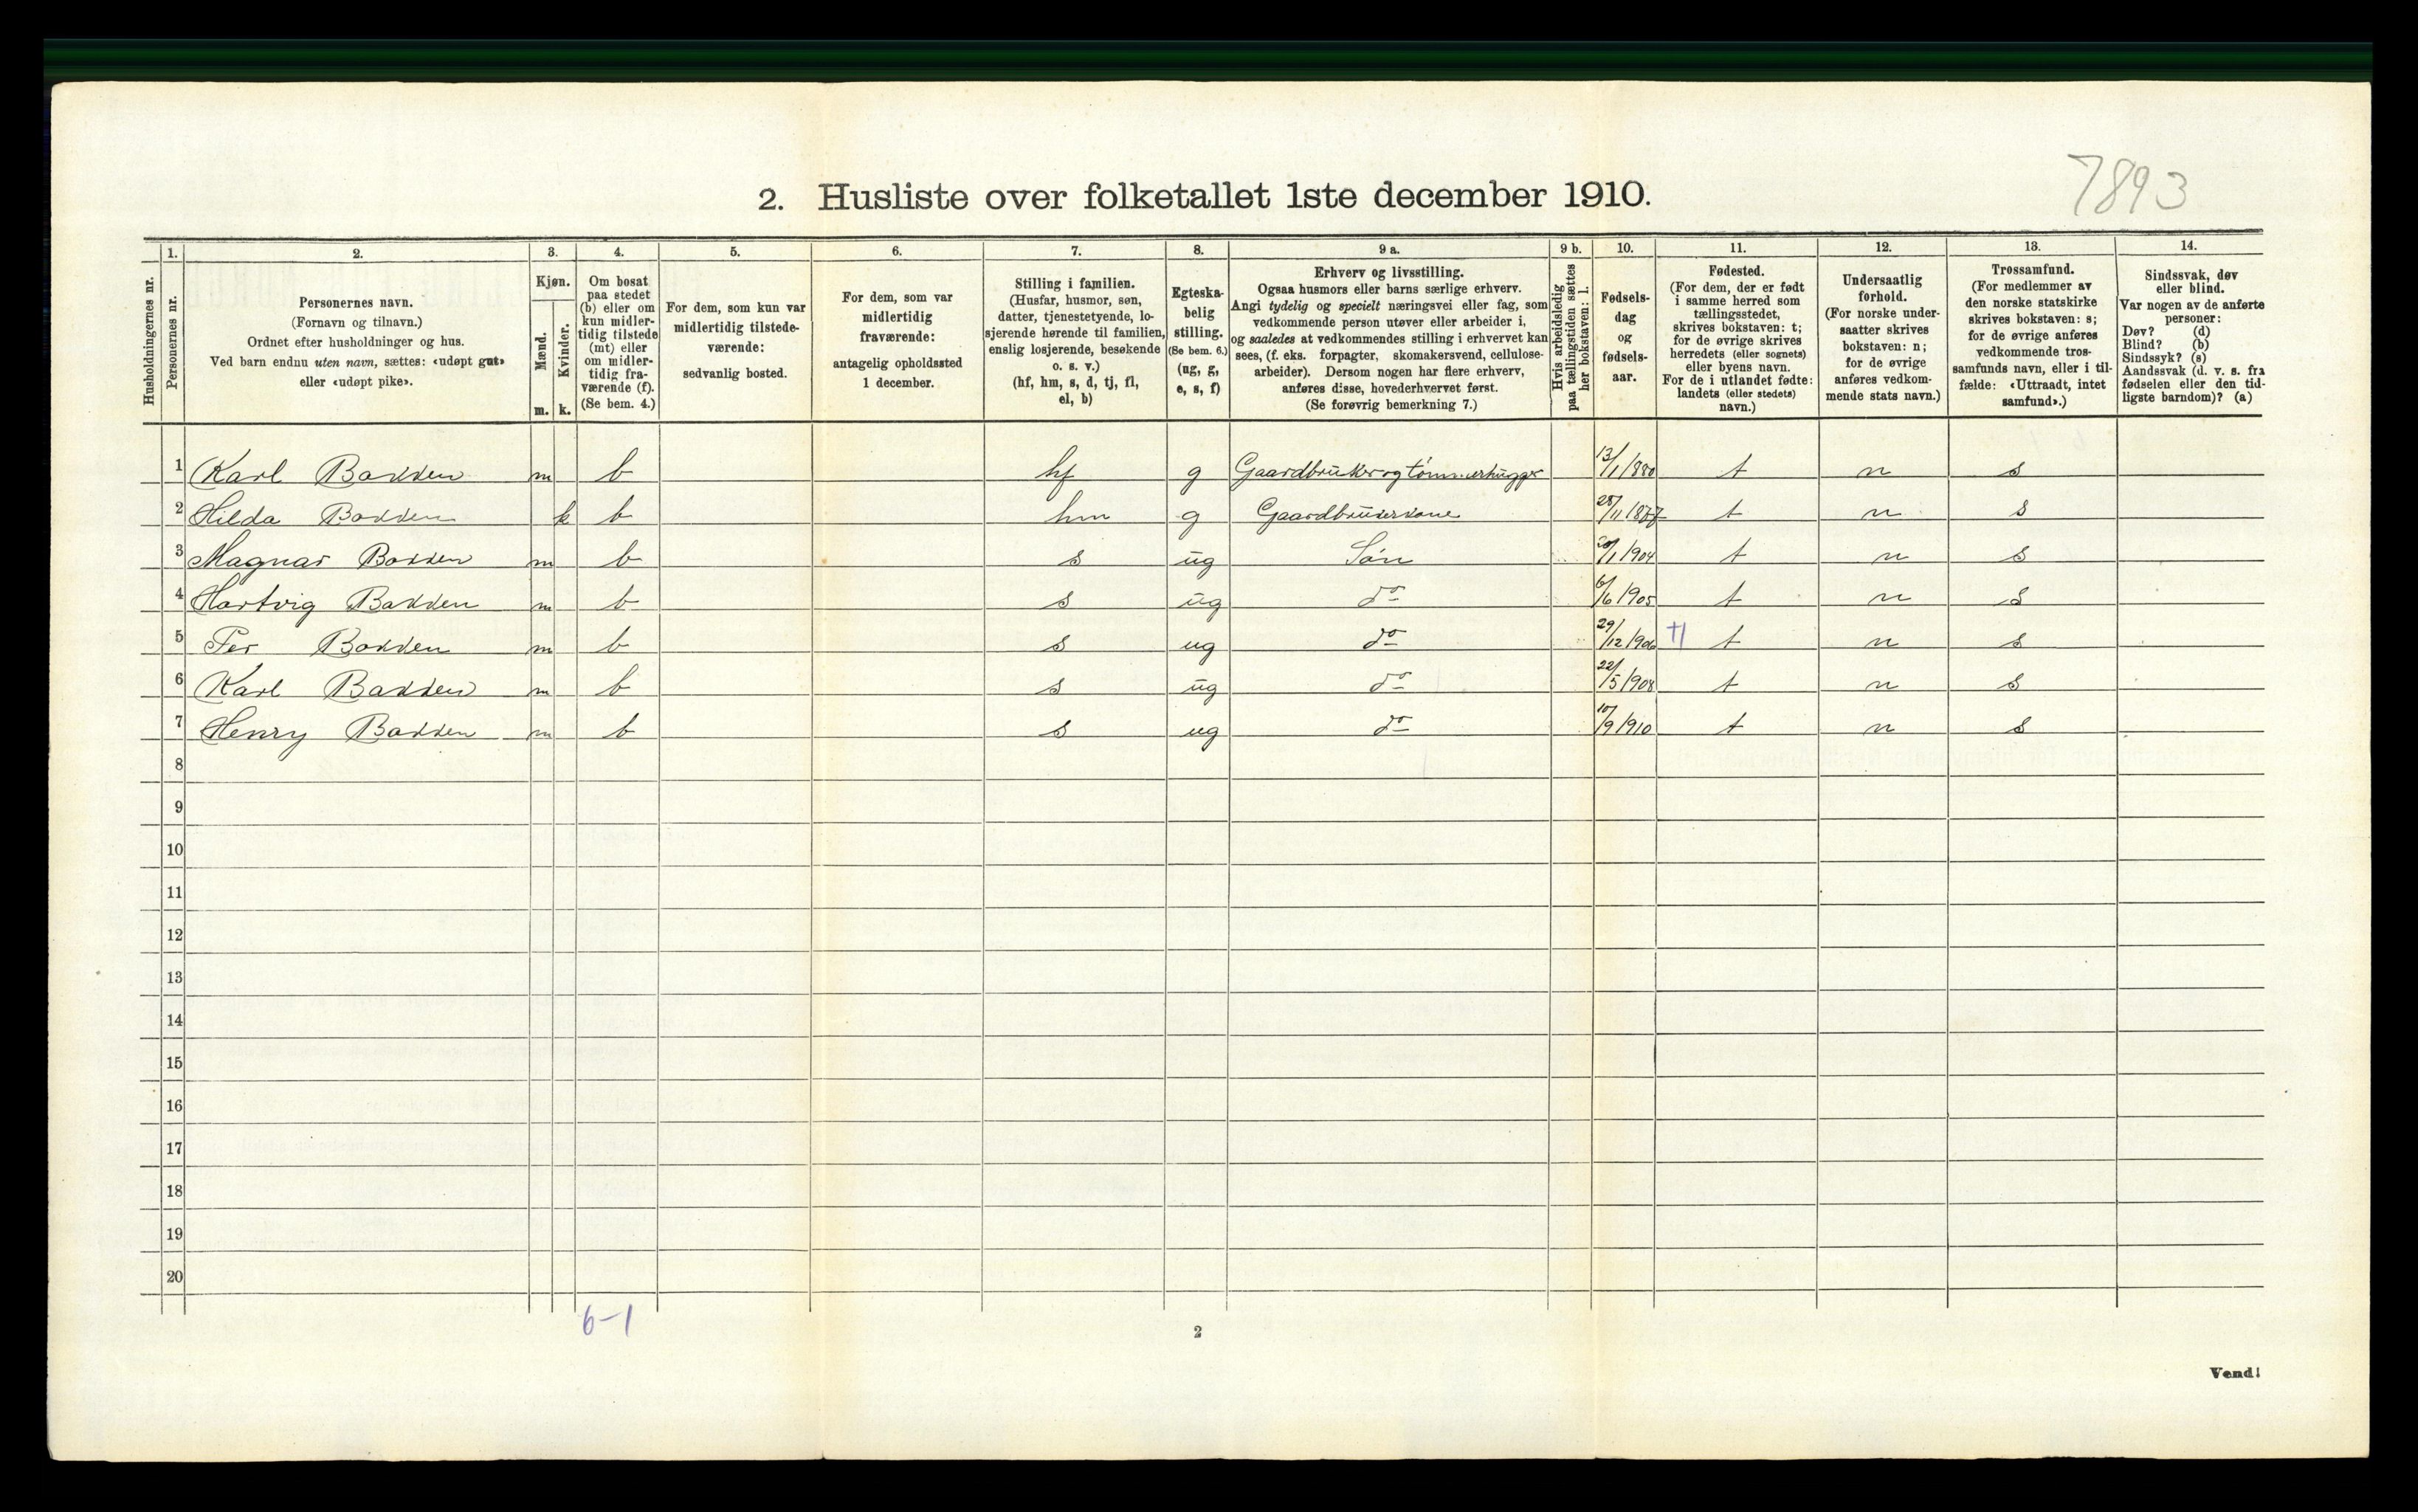 7893
2. Husliste over folketallet 1ste december 1910.
1. 2. 3. 4. 5. 6. 7. 8. 9 a. 9 b. 10. 11. 12. 13. 14.
Husholdningernes nr.
Personernes nr.
Personernes navn.
(Fornavn og tilnavn.)
Ordnet efter husholdninger og hus.
Ved barn endnu uten navn, sættes: «udøpt gut»
eller «udøpt pike».
Kjøn.
Mænd.
Kvinder.
m. k.
Om bosat
paa stedet
(b) eller om
kun midler-
tidig tilstede
(mt) eller
om midler-
tidig fra-
værende (f).
(Se bem. 4.)
For dem, som kun var
midlertidig tilstede-
værende:
sedvanlig bosted.
For dem, som var
midlertidig
fraværende:
antagelig opholdssted
1 december.
Stilling i familien.
(Husfar, husmor, søn,
datter, tjenestetyende, lo-
sjerende hørende til familien,
enslig losjerende, besøkende
o. s. v.)
(hf, hm, s, d, tj, fl,
el, b)
Egteska-
belig
stilling.
(Se bem. 6.)
(ug, g,
e, s, f)
Erhverv og livsstilling.
Ogsaa husmors eller barns særlige erhverv.
Angi tydelig og specielt næringsvei eller fag, som
vedkommende person utøver eller arbeider i,
og saaledes at vedkommendes stilling i erhvervet kan
sees, (f. eks. forpagter, skomakersvend, cellulose-
arbeider). Dersom nogen har flere erhverv,
anføres disse, hovederhvervet først.
(Se forøvrig bemerkning 7.)
Hvis arbeidsledig
paa tællingstiden sættes
her bokstaven: l.
Fødsels-
dag
og
fødsels-
aar.
Fødested.
(For dem, der er født
i samme herred som
tællingsstedet,
skrives bokstaven: t;
for de øvrige skrives
herredets (eller sognets)
eller byens navn.
For de i utlandet fødte:
landets (eller stedets)
navn.)
Undersaatlig
forhold.
(For norske under-
saatter skrives
bokstaven: n;
for de øvrige
anføres vedkom-
mende stats navn.)
Trossamfund.
(For medlemmer av
den norske statskirke
skrives bokstaven: s;
for de øvrige anføres
vedkommende tros-
samfunds navn, eller i til-
fælde: «Uttraadt, intet
samfund».)
Sindssvak, døv
eller blind.
Var nogen av de anførte
personer:
Døv? (d)
Blind? (b)
Sindssyk? (s)
Aandssvak (d. v. s. fra
fødselen eller den tid-
ligste barndom)? (a)
1 Karl Bakken m b hf g Gaardbruker og tømmerhugger 13/1 1880 t n s
2 Hilda Bakken k b hm g Gaardbrukerkone 28/11 1877 t n s
3 Magnar Bakken m b s ug Søn 20/1 1904 t n s
4 Hartvig Bakken m b s ug do 6/6 1905 t n s
5 Per Bakken m b s ug do 29/12 1906 t n s
6 Karl Bakken m b s ug do 22/5 1908 t n s
7 Henry Bakken m b s ug do 10/9 1910 t n s
8
9
10
11
12
13
14
15
16
17
18
19
20
6-1
2
Vend!